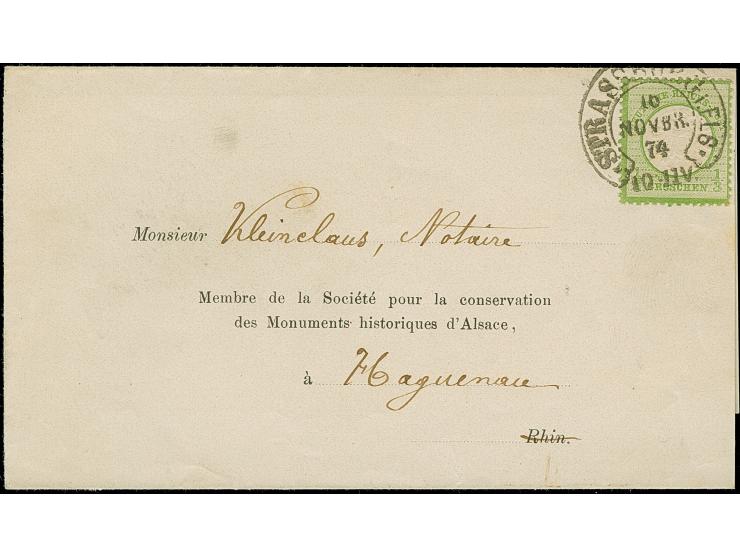 STRASSBURG I. ELS.
10
NOVBR.
74
10-11V.
1/3
GROSCHEN
Monsieur Kleinclaus, Notaire
Membre de la Société pour la conservation
des Monuments historiques d'Alsace,
à Haguenau
Rhin.